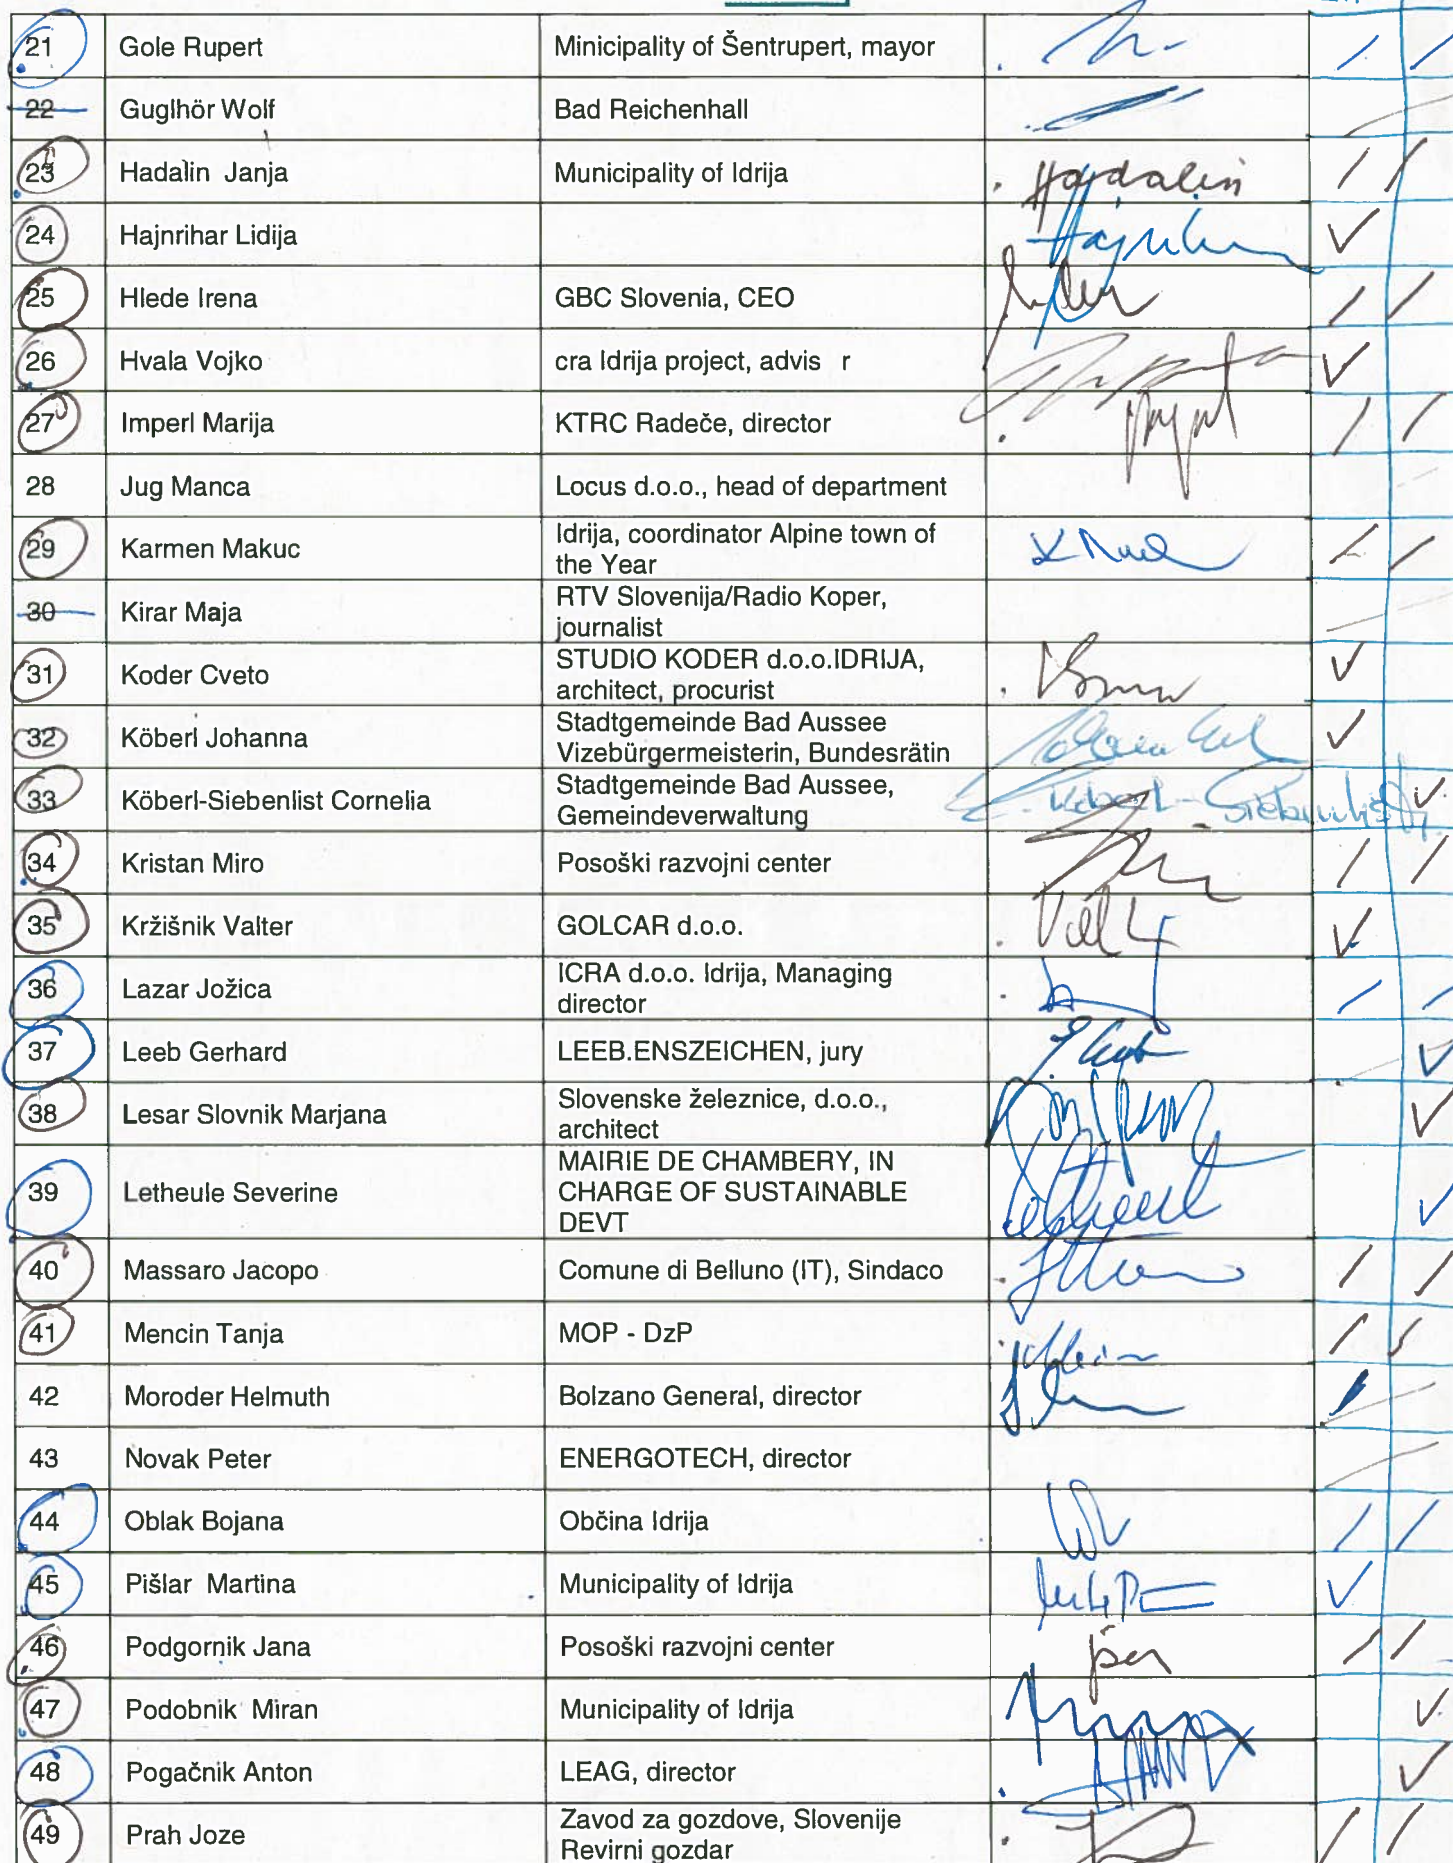 21 Gole Rupert Minicipality of Šentrupert, mayor
22 Guglhör Wolf Bad Reichenhall
23 Hadalin Janja Municipality of Idrija Hadalin
24 Hajnrihar Lidija
25 Hlede Irena GBC Slovenia, CEO
26 Hvala Vojko cra Idrija project, advis r
27 Imperl Marija KTRC Radeče, director
28 Jug Manca Locus d.o.o., head of department
29 Karmen Makuc Idrija, coordinator Alpine town of
the Year
30 Kirar Maja RTV Slovenija/Radio Koper,
journalist
31 Koder Cveto STUDIO KODER d.o.o.IDRIJA,
architect, procurist
32 Köberl Johanna Stadtgemeinde Bad Aussee
Vizebürgermeisterin, Bundesrätin
33 Köberl-Siebenlist Cornelia Stadtgemeinde Bad Aussee,
Gemeindeverwaltung
34 Kristan Miro Posoški razvojni center
35 Kržišnik Valter GOLCAR d.o.o.
36 Lazar Jožica ICRA d.o.o. Idrija, Managing
director
37 Leeb Gerhard LEEB.ENSZEICHEN, jury
38 Lesar Slovnik Marjana Slovenske železnice, d.o.o.,
architect
39 Letheule Severine MAIRIE DE CHAMBERY, IN
CHARGE OF SUSTAINABLE
DEVT
40 Massaro Jacopo Comune di Belluno (IT), Sindaco
41 Mencin Tanja MOP - DzP
42 Moroder Helmuth Bolzano General, director
43 Novak Peter ENERGOTECH, director
44 Oblak Bojana Občina Idrija
45 Pišlar Martina Municipality of Idrija
46 Podgornik Jana Posoški razvojni center
47 Podobnik Miran Municipality of Idrija
48 Pogačnik Anton LEAG, director
49 Prah Joze Zavod za gozdove, Slovenije
Revirni gozdar